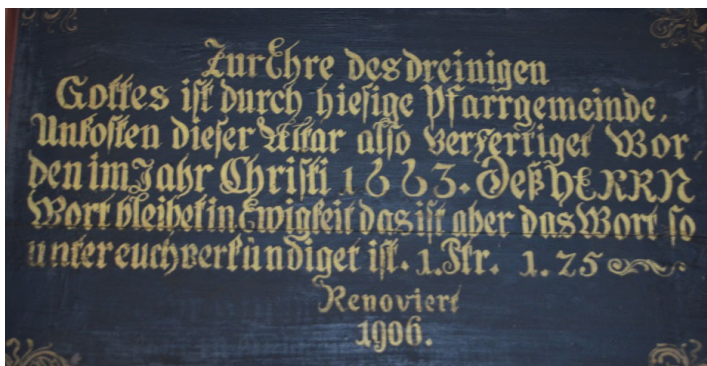 Zur Ehre des dreinigen
Gottes ist durch hiesige Pfarrgemeinde,
Unkosten dieser Altar also verfertiget Wor,
den im Jahr Christi 1663. Deß HERRN
Wort bleibet in Ewigkeit das ist aber das Wort so
unter euch verkündiget ist. 1. Ptr. 1. 25
Renoviert
1906.